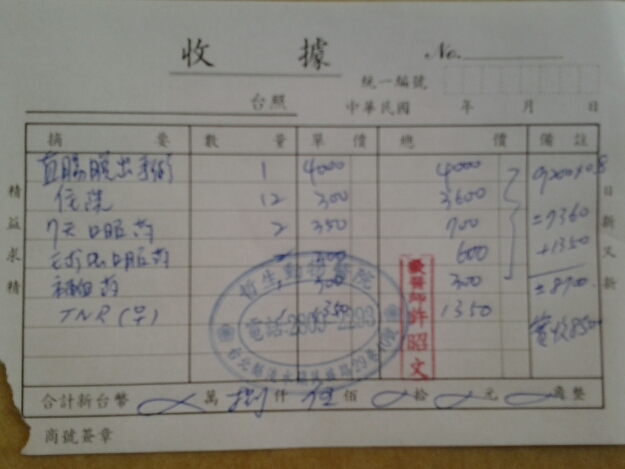 收據
No.
統一編號
台照 中華民國 年 月 日
摘要 數量 單價 總價 備註
直腸脫出手術 1 4000 4000 9200×0.8
住院 12 300 3600
7天口服药 2 350 700 =7360
口服药 600 +1350
300 =8700
TNR(早) 1350 1350 實收8500
哲生動物醫院
電話:
獸醫師許昭文
精益求精
日新又新
合計新台幣 萬捌仟伍佰 拾 元 邊整
商號簽章